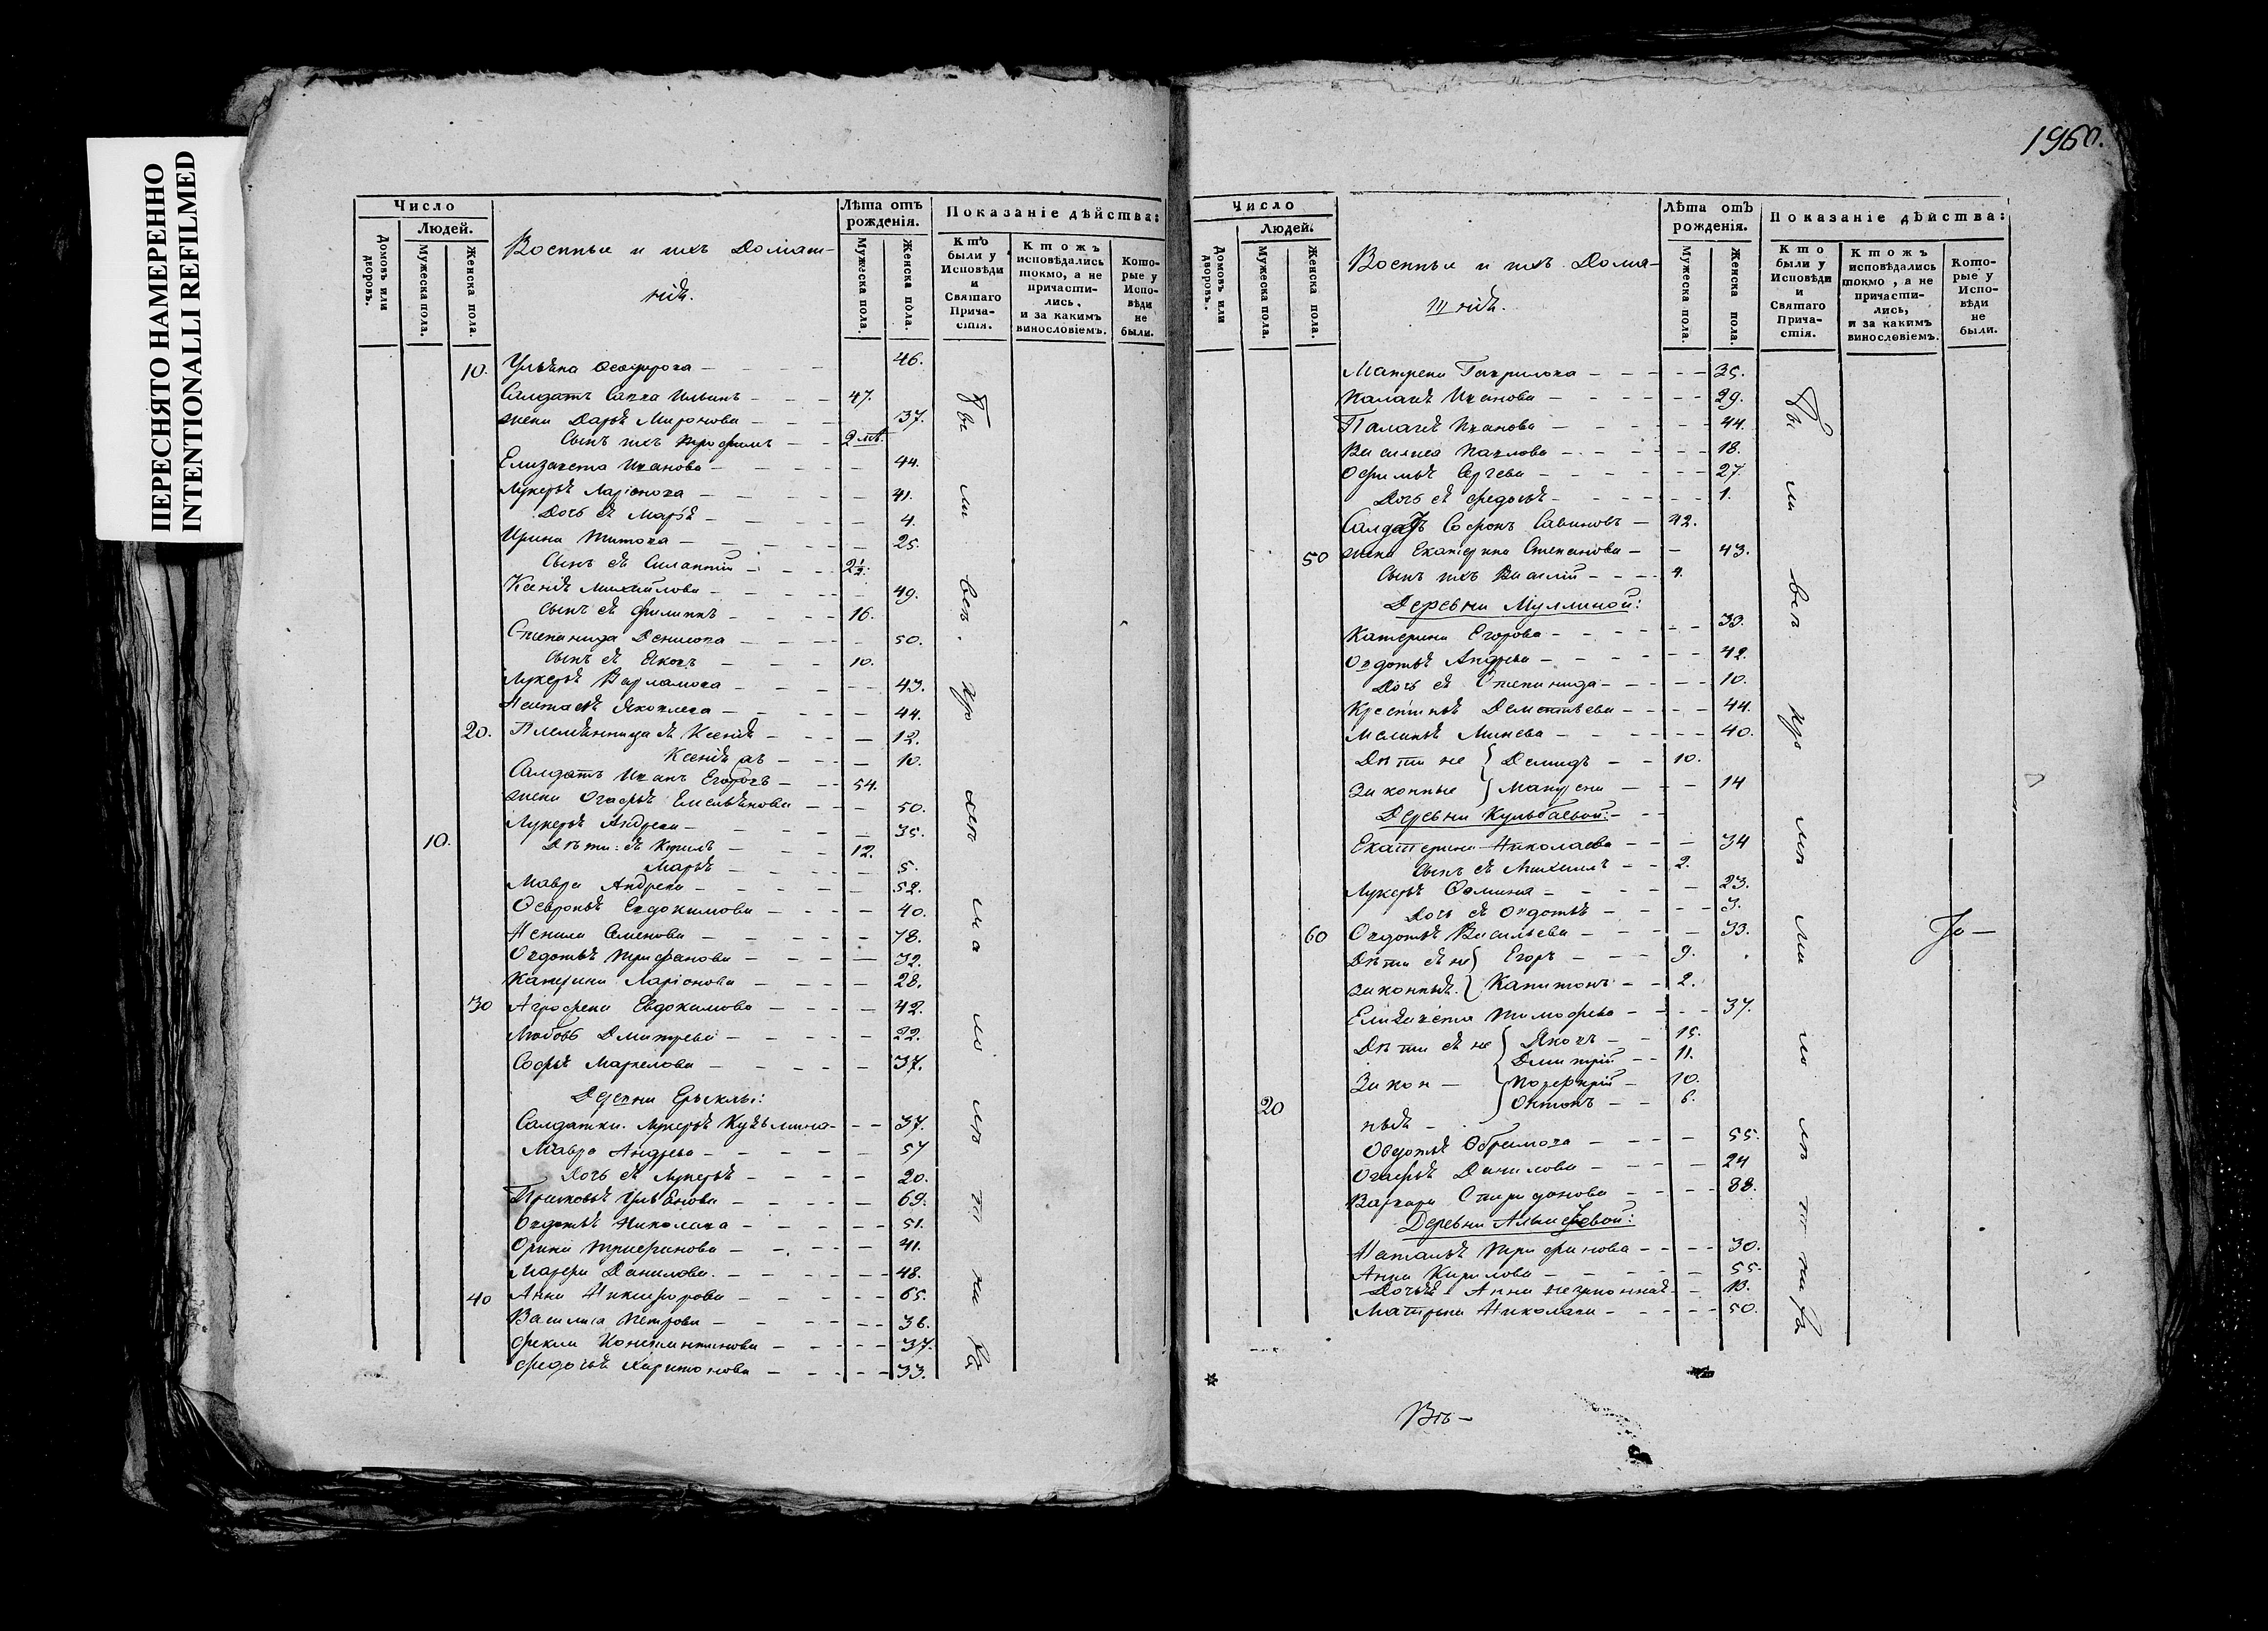 ПЕРЕСНЯТО НАМЕРЕННО
INTENTIONALLI REFILMED
1960.
Число
Людей.
Домовъ или дворовъ.
Мужеска пола.
Женска пола.
Военные и ихъ домаш-
ніѣ.
Лѣта отъ рожденія.
Мужеска пола.
Женска пола.
Показаніе дѣйства:
Кто были у Исповѣди и Святаго Прича-стія.
Ктожъ исповѣдались токмо, а не причасти-лись, и за какимъ винословіемъ.
Кото-рые у Испо-вѣди не были.
10. Ульяна 46.
Салдатъ Савва Ильинъ 47.
жена Дарьѣ Миронова 37.
Сынъ ихъ Трофимъ 2
Елизавета Иванова 44.
Лукерьѣ Ларіонова 41.
Дочь еѣ Марьѣ 4.
Ирина Титова 25.
Сынъ еѣ Силантій 2½.
Ксеніѣ Михайлова 49.
Сынъ еѣ Филиппъ 16.
Степанида Данилова 50.
Сынъ еѣ Яковъ 10.
Лукерьѣ Варламова 43.
Настасьѣ Яковлева 44.
20. Племѣнница еѣ Ксеніѣ 12.
Ксеніѣ 10.
Салдатъ Иванъ Егоровъ 54.
жена Огафьѣ Емельѣнова 50.
Лукерьѣ Андреева 35.
10. Дѣти: еѣ Кирилъ 12.
Марьѣ 5.
Мавра Андреева 52.
Февроньѣ Евдокимова 40.
Ненила Семенова 78.
Овдотьѣ Трифанова 32.
Катерина Ларіонова 28.
30 Аграфена Евдокимова 42.
Любовь Дмитрева 22.
Софьѣ Маркелова 37.
Деревни Ерыклы:
Салдатки. Лукерьѣ Кузьмина 37.
Мавра Андрева 57
Дочь еѣ Лукерьѣ 20.
Прасковьѣ Ульѣнова 69.
Овдотьѣ Николаева 51.
Орина Трифанова 41.
Марфа Данилова. 48.
40 Анна Никифорова 65.
Василиса Петрова 36.
Фекла Констинтинова 37.
Федосьѣ Харитонова 33.
Бы
ли
всѣ
Число
Людей.
Домовъ или дворовъ.
Мужеска пола.
Женска пола.
Военные и ихъ Дома-
шніѣ.
Лѣта отъ рожденія.
Мужеска пола.
Женска пола.
Показаніе дѣйства:
Кто были у Исповѣди и Святаго Прича-стія.
Ктожъ исповѣдались токмо, а не причасти-лись, и за какимъ винословіемъ.
Кото-рые у Испо-вѣди не были.
Матрена Гаврилова 35.
Палагѣ Иванова 29.
Палагѣ Иванова 44.
Василиса Павлова 18.
Офимьѣ Сергева 27.
Дочь еѣ Федосьѣ 1.
Салдатъ Софронъ Савиновъ 42.
50 жена Екатерина Степанова 43.
Сынъ ихъ Василій 4.
Деревни Муллиной:
Катерина Егорова 33.
Овдотьѣ Андрева 42.
Дочь еѣ Степанида 10.
Крестиньѣ Дементьева 44.
Меланьѣ Минева 40.
Дѣти не Демидъ 10.
законные 14
Деревни Кульбаевой:
Екатерина Николаева 34
Сынъ еѣ Михаилъ 2.
Лукерьѣ Фомина 23.
Дочь еѣ Овдотьѣ 3.
60 Овдотьѣ Васильева 33.
Дѣти еѣ не Егоръ 9.
законныѣ. Капитонъ 2.
Елизавета Тимофева 37.
Дѣти еѣ не Яковъ 15.
Дмитрій 11.
Закон Порфирій 10.
20 Онтонъ 6.
ныѣ
Овдотьѣ 55.
Огафьѣ Данилова 24
Варвара Спиридонова 88.
Деревни
Натальѣ Трифанова 30.
Анна Кирилова 55.
Анна незаконнаѣ 13.
Матрена Николаева 50.
Бы
ли
всѣ
Въ